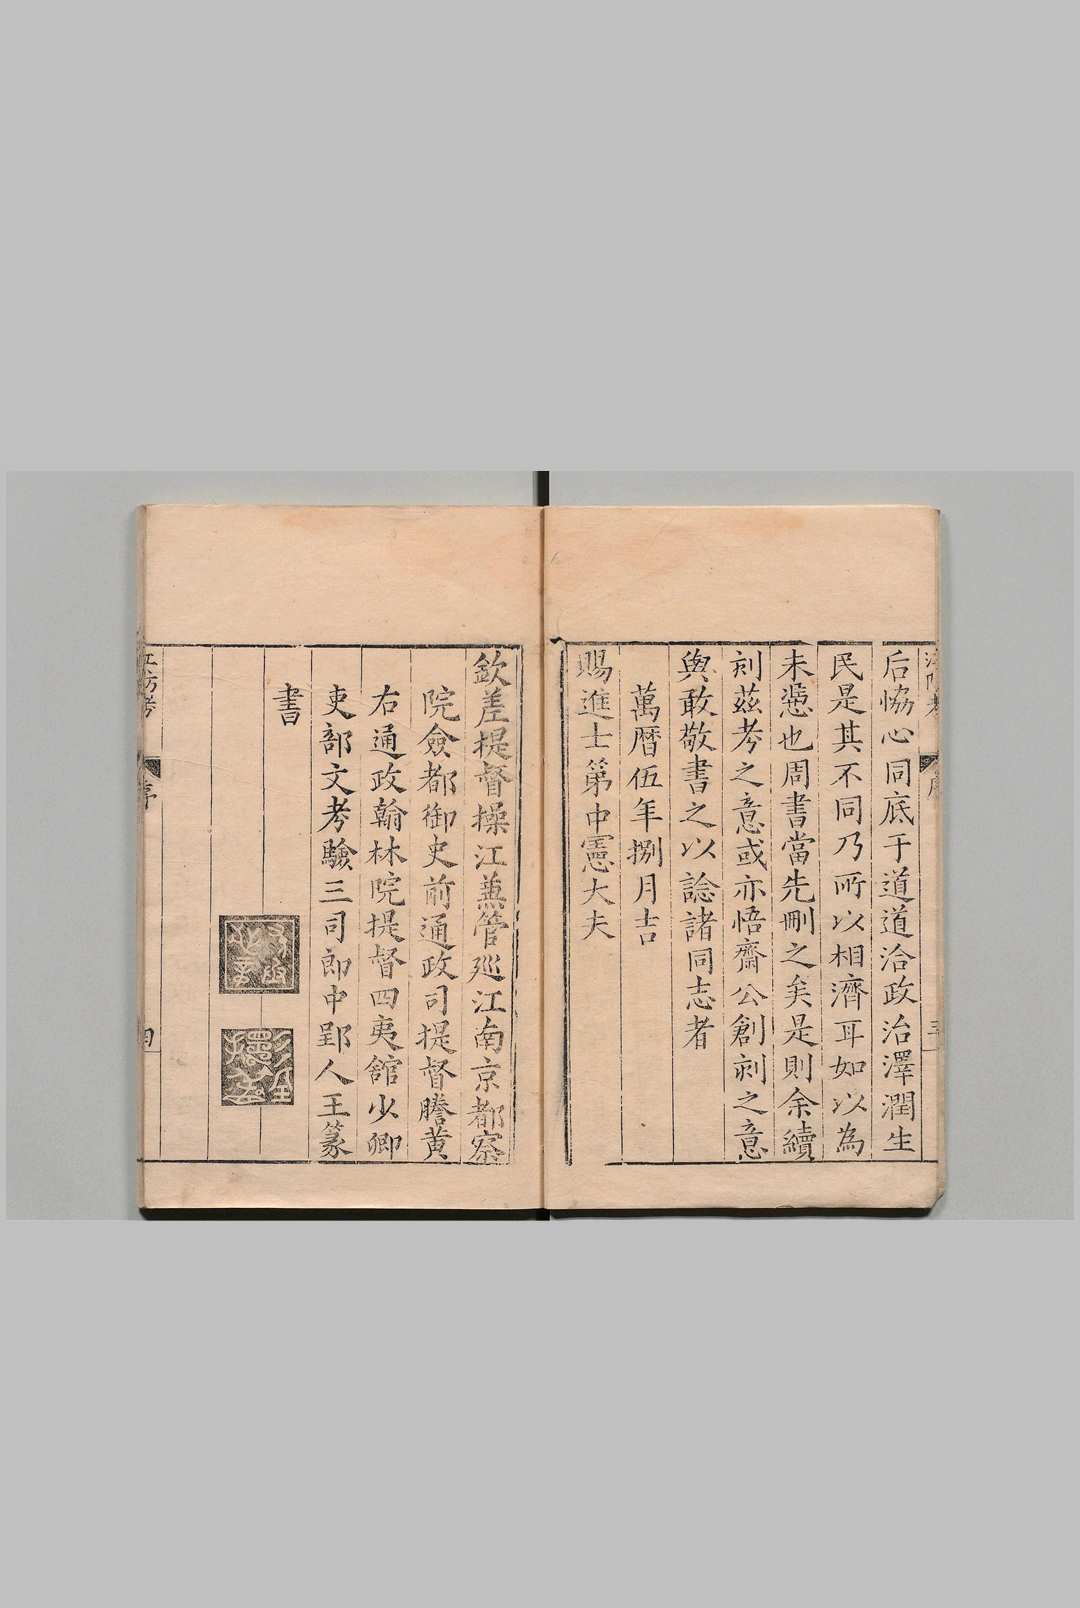 后恊心同底于道道洽政治澤潤生
民是其不同乃所以相濟耳如以為
未愻也周書當先刪之矣是則余續
刻茲考之意或亦悟齋公創刻之意
與敢敬書之以諗諸同志者
萬曆伍年捌月吉
賜進士第中憲大夫
欽差提督操江兼管廵江南京都察
院僉都御史前通政司提督謄黃
右通政翰林院提督四夷舘少卿
吏部文考驗三司郎中郢人王篆
書
江防考
序
四